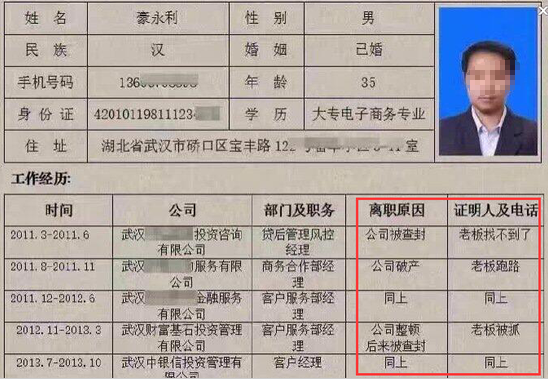 姓 名 豪永利 性 别 男
民 族 汉 婚 姻 已婚
手机号码 136 年 龄 35
身 份 证 42010119811123 学 历 大专电子商务专业
住 址 湖北省武汉市硚口区宝丰路122 室
工作经历:
时间 公司 部门及职务 离职原因 证明人及电话
2011.3-2011.6 武汉 投资咨询有限公司 贷后管理风控经理 公司被查封 老板找不到了
2011.8-2011.11 武汉 服务有限公司 商务合作部经理 公司破产 老板跑路
2011.12-2012.6 武汉 金融服务有限公司 客户服务部经理 同上 同上
2012.11-2013.3 武汉财富基石投资管理有限公司 客户服务部经理 公司整顿后来被查封 老板被抓
2013.7-2013.10 武汉中银信投资管理有限公司 客户经理 同上 同上